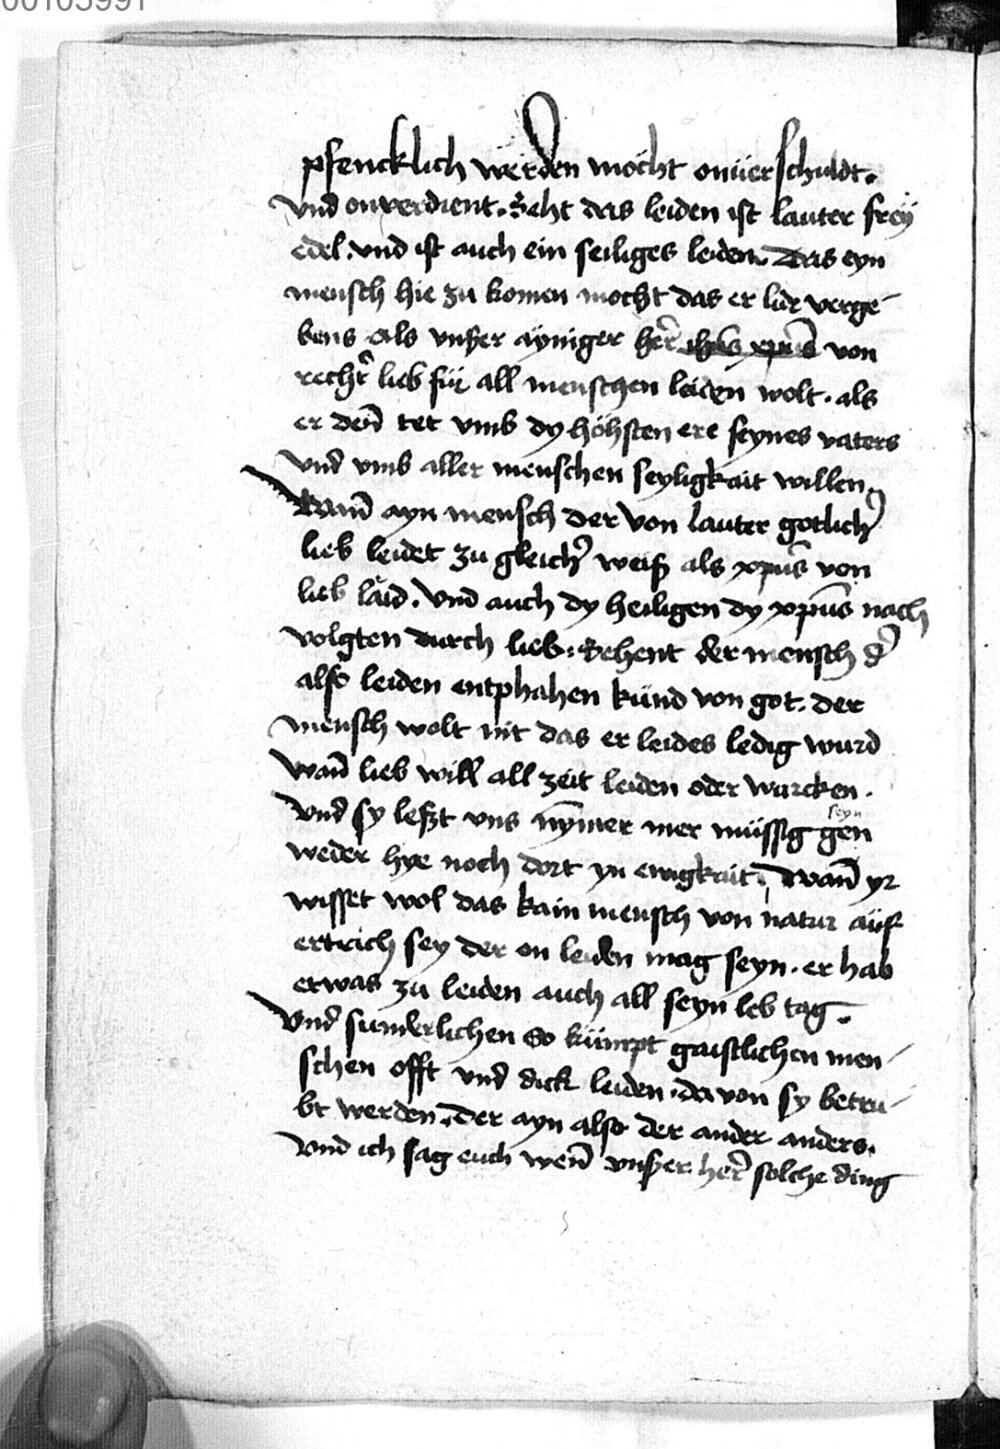 00103991
pfencklich werden möcht onüerschuldt.
Vnd onverdient. Seht das leiden ist lauter freÿ
edel. vnd ist auch ein seiliges leiden. Das eyn
mensch hie zu komen mocht das er lüt verge-
bens als vnßer ayniger her̃ ihūs xpūs von
recht̃ lieb für all menschen leiden wolt. als
er den̄ tet vmb dy höhsten ere seynes vaters
Vnd vmb aller menschen seyligkait willen.
Wann̄ ayn mensch der von lauter gotlich̃
lieb leidet zu gleich̃ weiß als xpūs von
lieb laid. Vnd auch dy heiligen dy xpūs nach
volgten durch lieb. Sehent der mensch d̃
also leiden entphahen künd von got. der
mensch wolt nit das er leides ledig wurd
Wan̄ lieb will all zeit leiden oder wurcken.
Vnd sy leßt vns nȳmer mer müssig gen
seyn
weder hye noch dort yn ewigkait. Wan̄ yr
wisset wol das kain mensch von natur auf
ertrich sey der on leiden mag seyn. er hab
etwas zu leiden auch all seyn leb tag.
Vnd sunderlichen So kümpt gaistlichen men-
schen offt vnd dick leiden. da von sy betru-
bt werden. Der ayn also der ander anders.
Vnd ich sag euch wen̄ vnßer her̃ solche ding